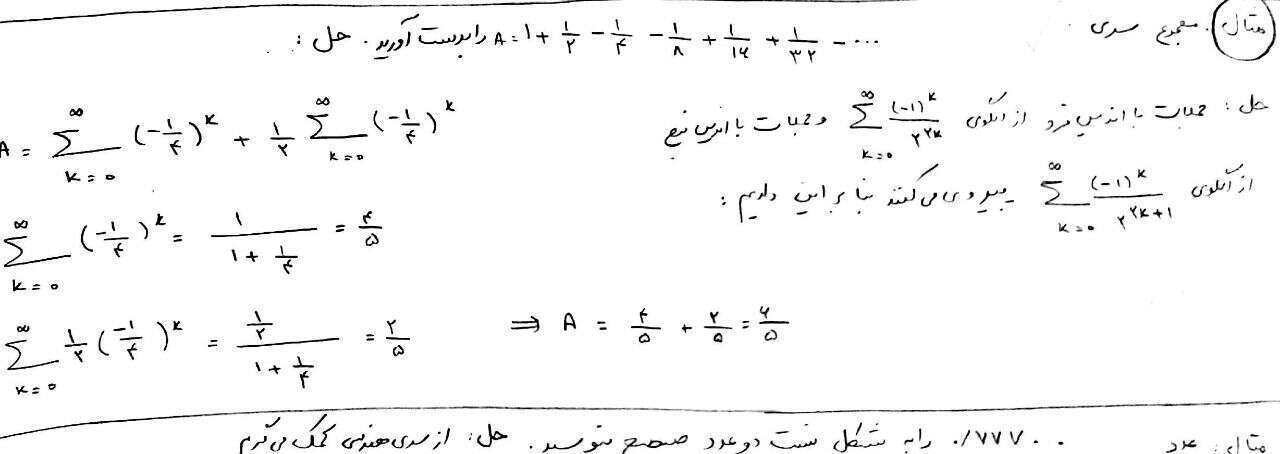 مثال. مجموع سری A = ۱ + ۱/۲ - ۱/۴ - ۱/۸ + ۱/۱۶ + ۱/۳۲ - ... را بدست آورید. حل:
حل: جملات با اندیس فرد از الگوی ∑_{k=۰}^{∞} (-۱)^k / ۲^{۲k} و جملات با اندیس زوج
از الگوی ∑_{k=۰}^{∞} (-۱)^k / ۲^{۲k+۱} پیروی می‌کنند بنابراین داریم:
A = ∑_{k=۰}^{∞} (-۱/۴)^k + ۱/۲ ∑_{k=۰}^{∞} (-۱/۴)^k
∑_{k=۰}^{∞} (-۱/۴)^k = ۱ / (۱ + ۱/۴) = ۴/۵
∑_{k=۰}^{∞} ۱/۲ (-۱/۴)^k = (۱/۲) / (۱ + ۱/۴) = ۲/۵ ⇒ A = ۴/۵ + ۲/۵ = ۶/۵
مثال: عدد ۰/۷۷۷۰۰ را به شکل نسبت دو عدد صحیح بنویسید. حل: از سری هندسی کمک می‌گیریم